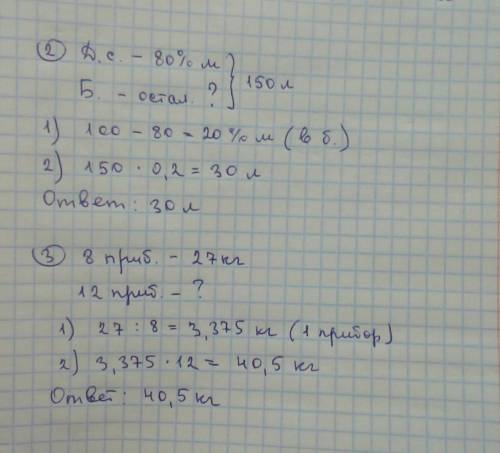 ② Д.с. – 80% м } 150 л
Б. – остал. ?
1) 100 – 80 = 20% м (в б.)
2) 150 · 0,2 = 30 л
Ответ: 30 л
③ 8 приб. – 27 кг
12 приб. – ?
1) 27 : 8 = 3,375 кг (1 прибор)
2) 3,375 · 12 = 40,5 кг
Ответ: 40,5 кг